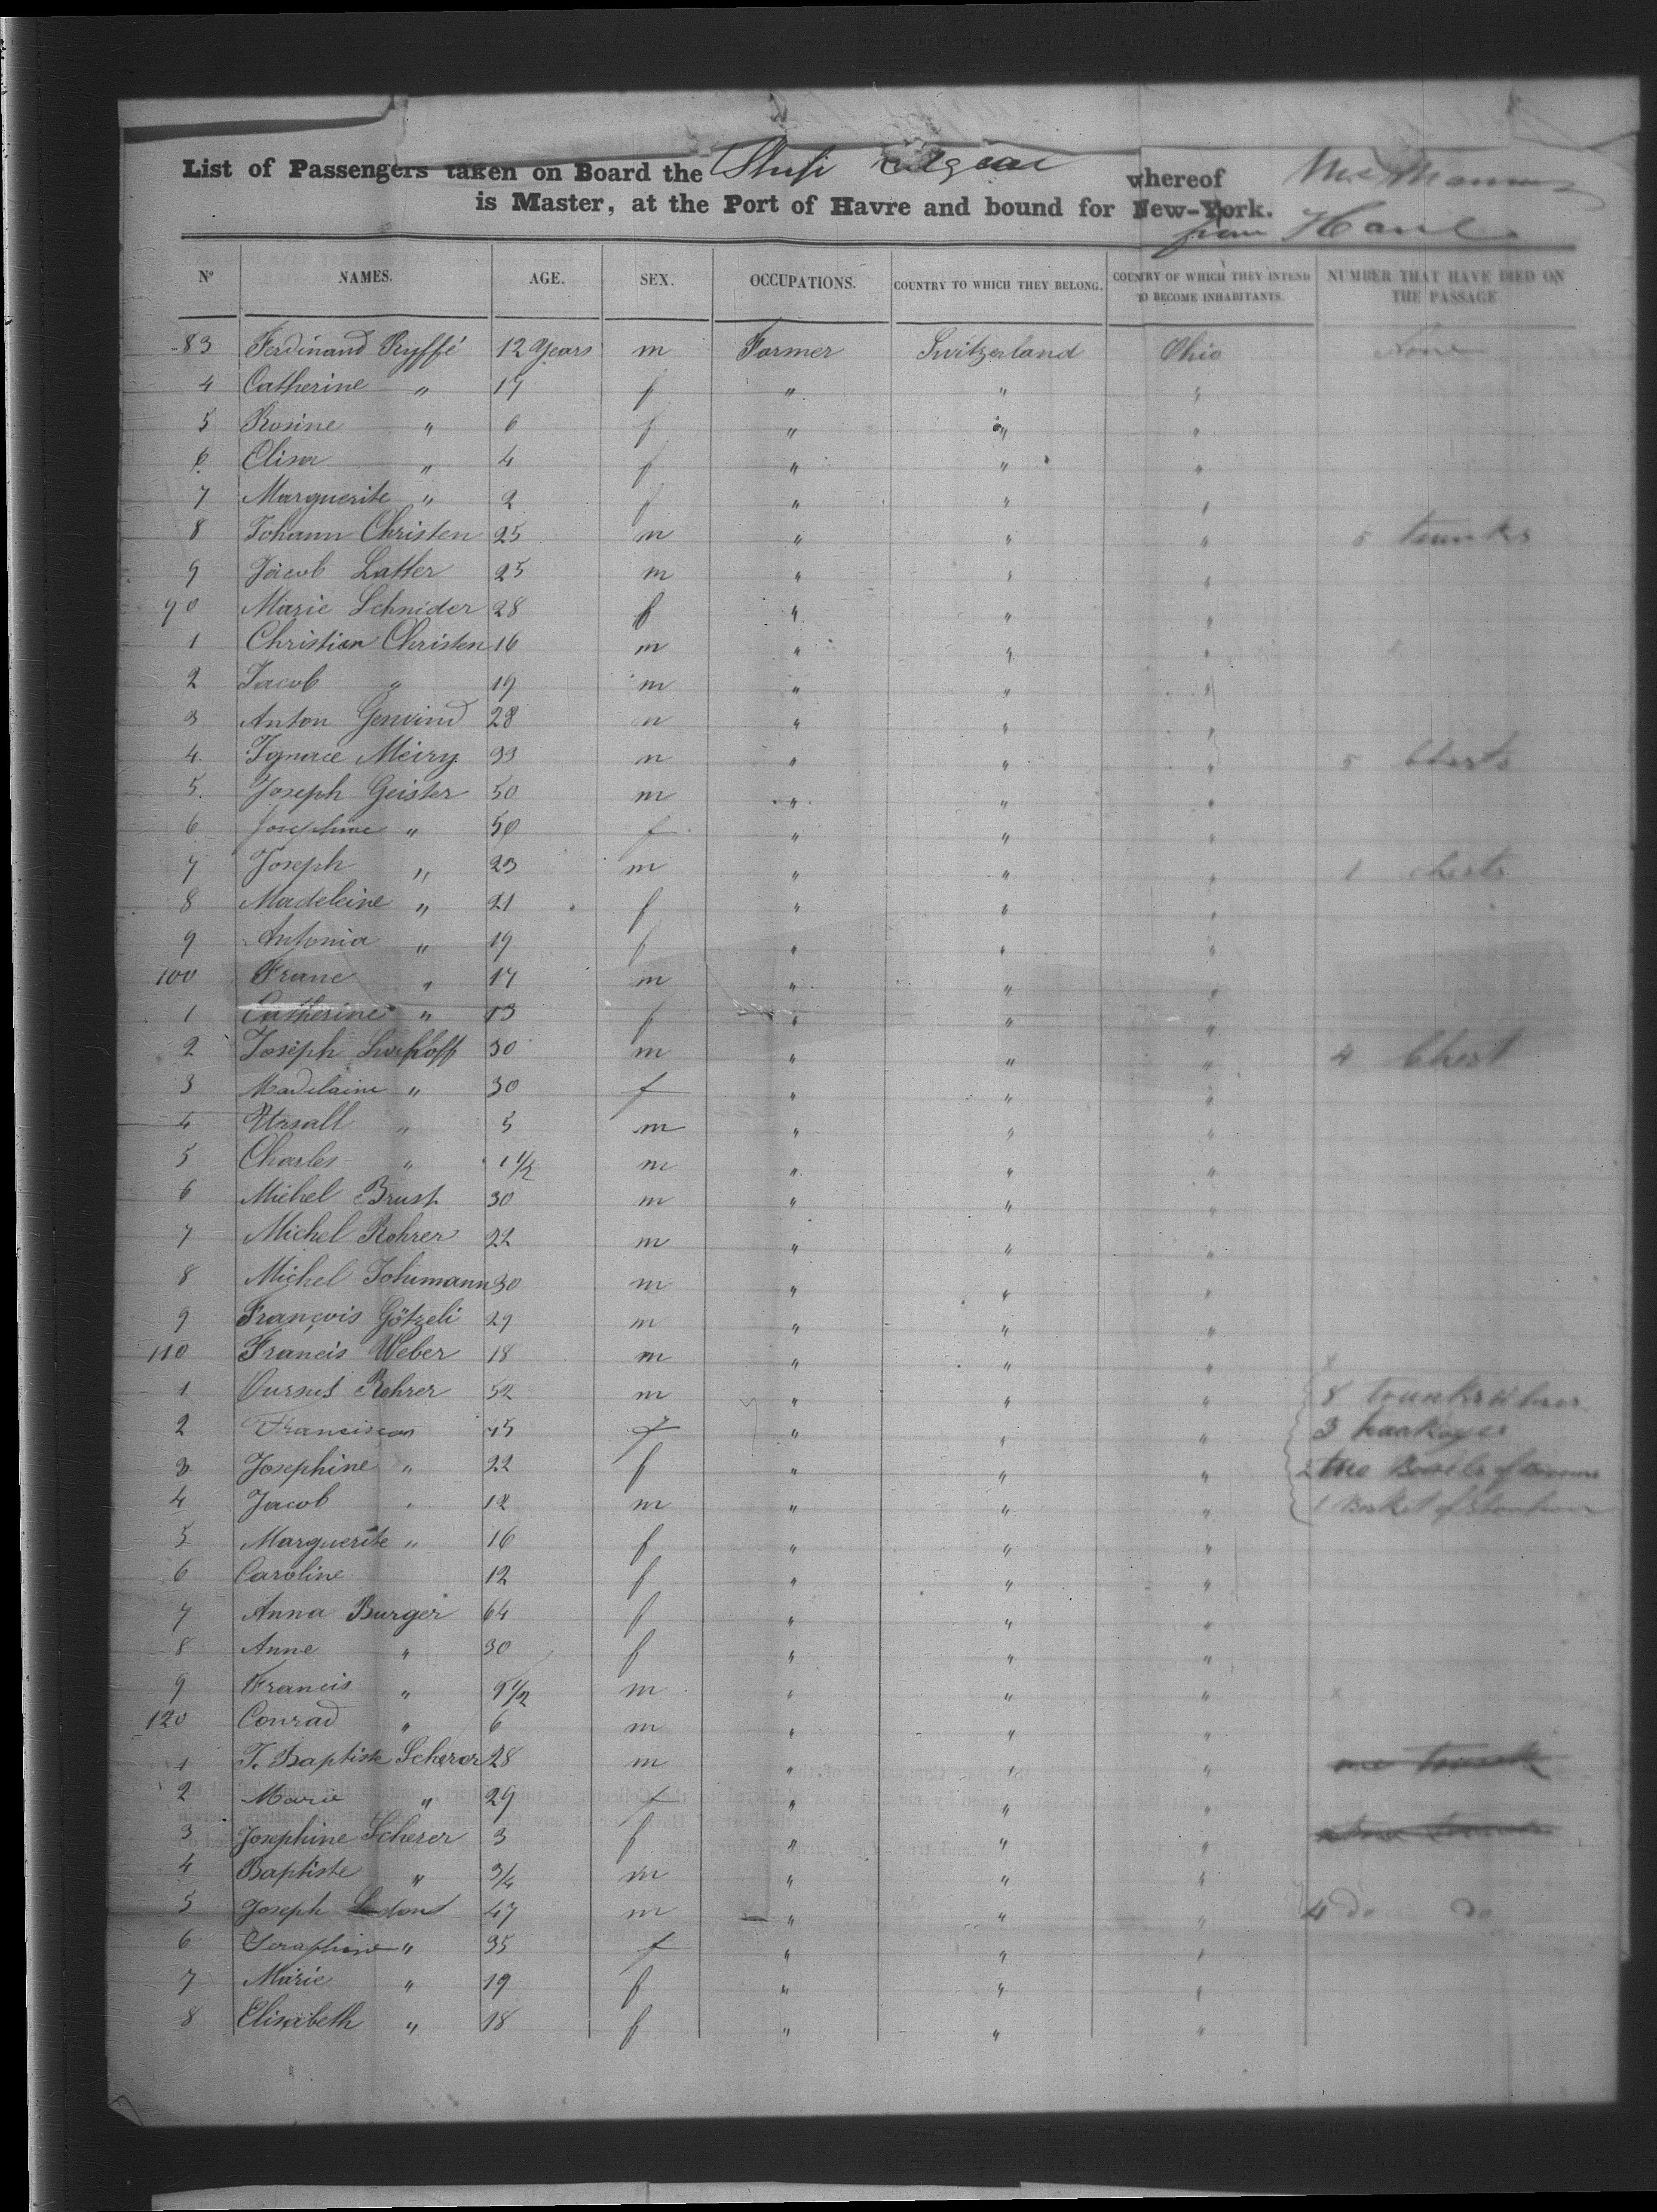 List of Passengers taken on Board the Ship whereof
is Master, at the Port of Havre and bound for New-York.
from Havre
Nº NAMES. AGE. SEX. OCCUPATIONS. COUNTRY TO WHICH THEY BELONG. COUNTRY OF WHICH THEY INTEND TO BECOME INHABITANTS. NUMBER THAT HAVE DIED ON THE PASSAGE
83 Ferdinand Ryffé 12 Years m Farmer Switzerland Ohio None
4 Catherine " 17 f " " "
5 Rosine " 6 f " " "
6 Elisa " 4 f " " "
7 Marguerite " 2 f " " "
8 Johann Christen 25 m " " " 5 trunks
9 Jacob Latter 25 m " " "
90 Marie Schnider 28 f " " "
1 Christian Christen 16 m " " "
2 Jacob " 19 m " " "
3 Anton Gerwind 28 m " " "
4 Ignace Meiry 33 m " " " 5 Chests
5 Joseph Geister 50 m " " "
6 Josephine " 50 f " " "
7 Joseph " 23 m " " " 1 chests
8 Madeleine " 21 f " " "
9 Antonia " 19 f " " "
100 Franc " 17 m " " "
1 Catherine " 13 f " " "
2 Joseph 30 m " " " 4 Chest
3 Madelaine " 30 f " " "
4 Ursall " 5 m " " "
5 Charles " 1 1/2 m " " "
6 Michel Brust 30 m " " "
7 Michel Rohrer 22 m " " "
8 Michel 30 m " " "
9 François Götzeli 29 m " " "
110 Francis Weber 18 m " " "
1 Oursus Rohrer 52 m " " " 8 trunks
2 Francisca 45 f " " " 3
3 Josephine " 22 f " " " two of
4 Jacob " 12 m " " " 1 Basket of
5 Marguerite " 16 f " " "
6 Caroline 12 f " " "
7 Anna Burger 64 f " " "
8 Anne " 30 f " " "
9 Francis " 9 1/2 m " " "
120 Conrad " 6 m " " "
1 J. Baptiste Scherer 28 m " " " one trunk
2 Marie " 29 f " " "
3 Josephine Scherer 3 f " " "
4 Baptiste " 3/4 m " " "
5 Joseph 47 m " " " 4 do do
6 Seraphine " 35 f " " "
7 Marie " 19 f " " "
8 Elisabeth " 18 f " " "